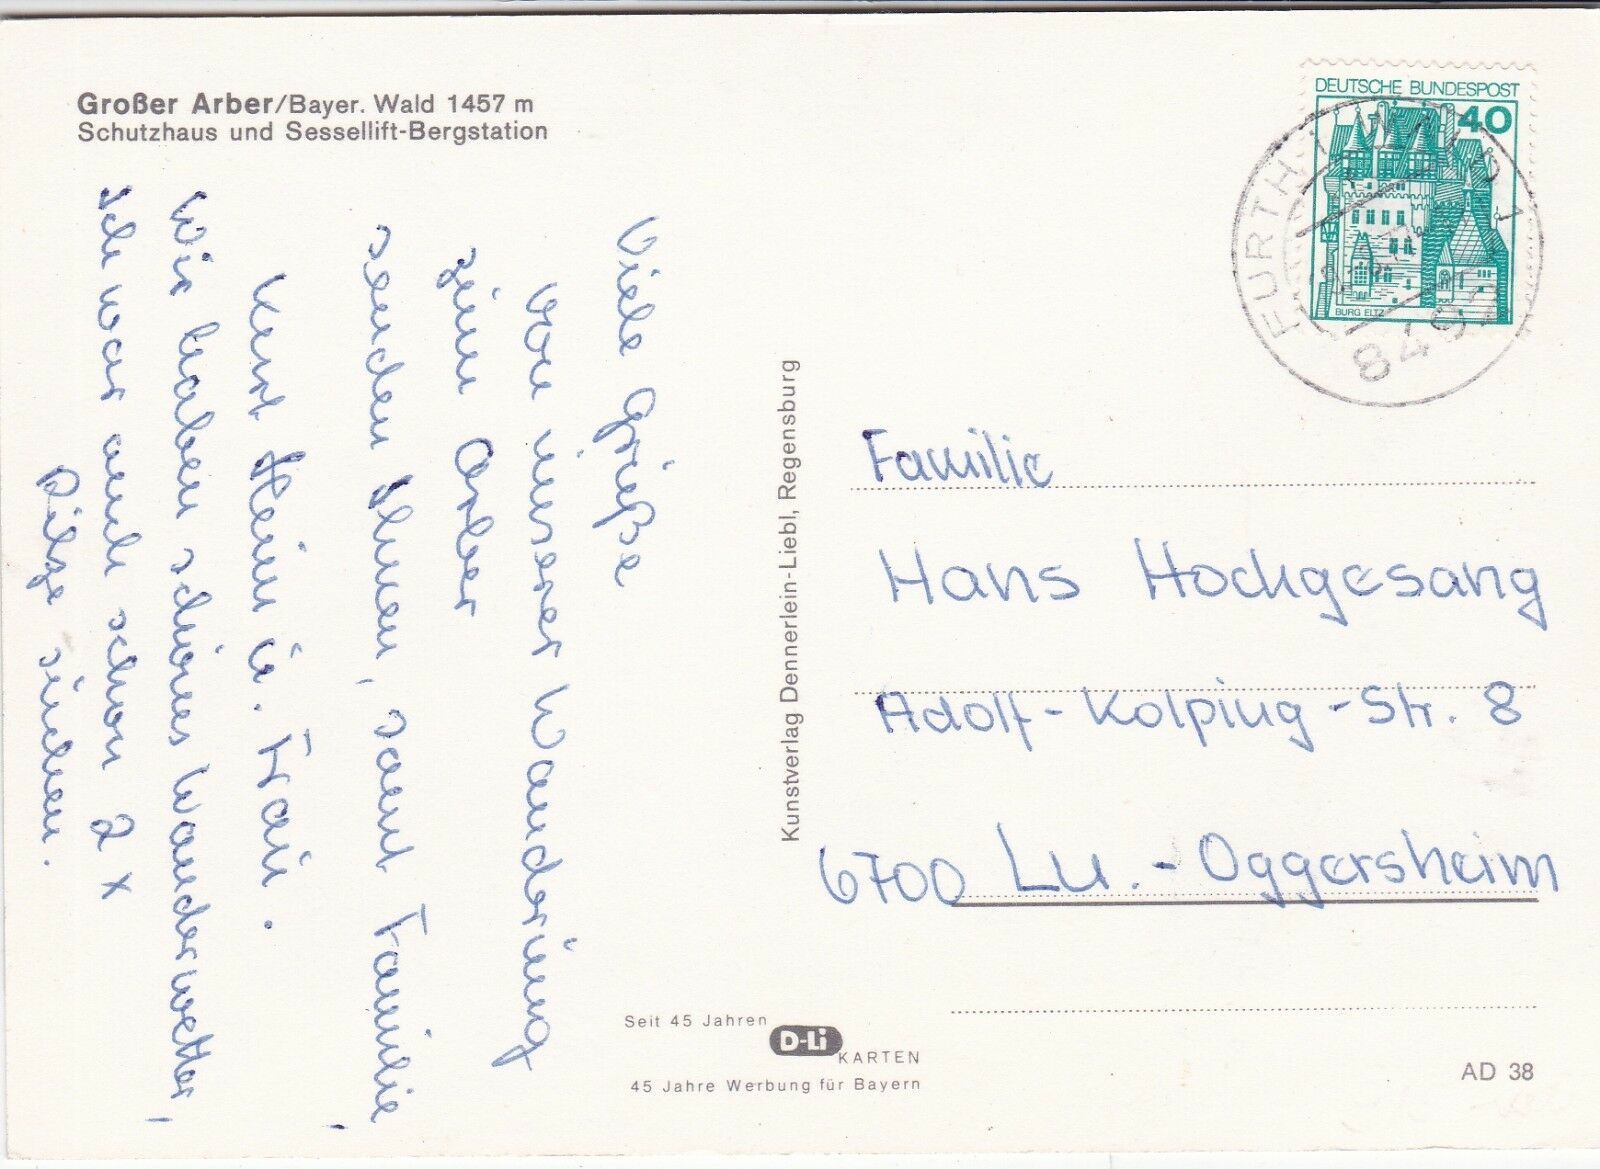 Großer Arber/Bayer. Wald 1457 m
Schutzhaus und Sessellift-Bergstation
Viele Grüße
von unserer Wanderung
zum Arber
senden Ihnen, samt Familie,
Kurt Heim u. Frau.
Wir haben schönes Wanderwetter,
Ich war auch schon 2 x
Pilze suchen.
Kunstverlag Dennerlein-Liebl, Regensburg
DEUTSCHE BUNDESPOST
40
BURG ELTZ
FURTH I WALD 1
8492
Familie
Hans Hochgesang
Adolf-Kolping-Str. 8
6700 Lu.-Oggersheim
Seit 45 Jahren
D-Li
KARTEN
45 Jahre Werbung für Bayern
AD 38